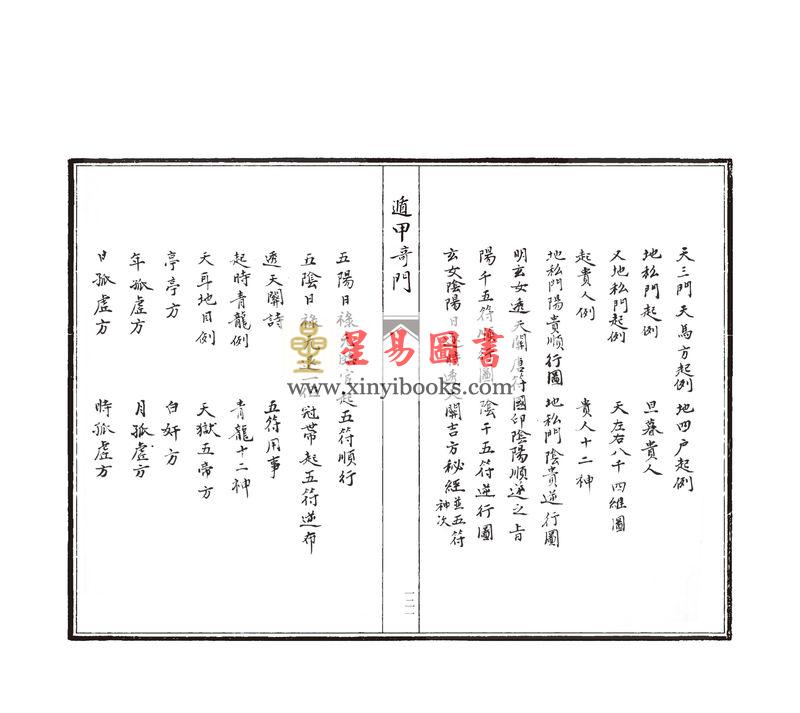 天三門天馬方起例 地四户起例
地私門起例 旦暮貴人
又地私門起例 天左右八干四維圖
起貴人例 貴人十二神
地私門陽貴順行圖 地私門陰貴逆行圖
明玄女透天關唐符國印陰陽順逆之旨
陽干五符順行圖 陰干五符逆行圖
玄女陰陽日透天關吉方秘經並五符神次
遁甲奇門
五陽日祿起五符順行
五陰日祿冠帶起五符逆布
透天關詩 五符用事
起時青龍例 青龍十二神
天耳地目例 天獄五帝方
亭亭方 白奸方
年孤虛方 月孤虛方
日孤虛方 時孤虛方
星易圖書
www.xinyibooks.com